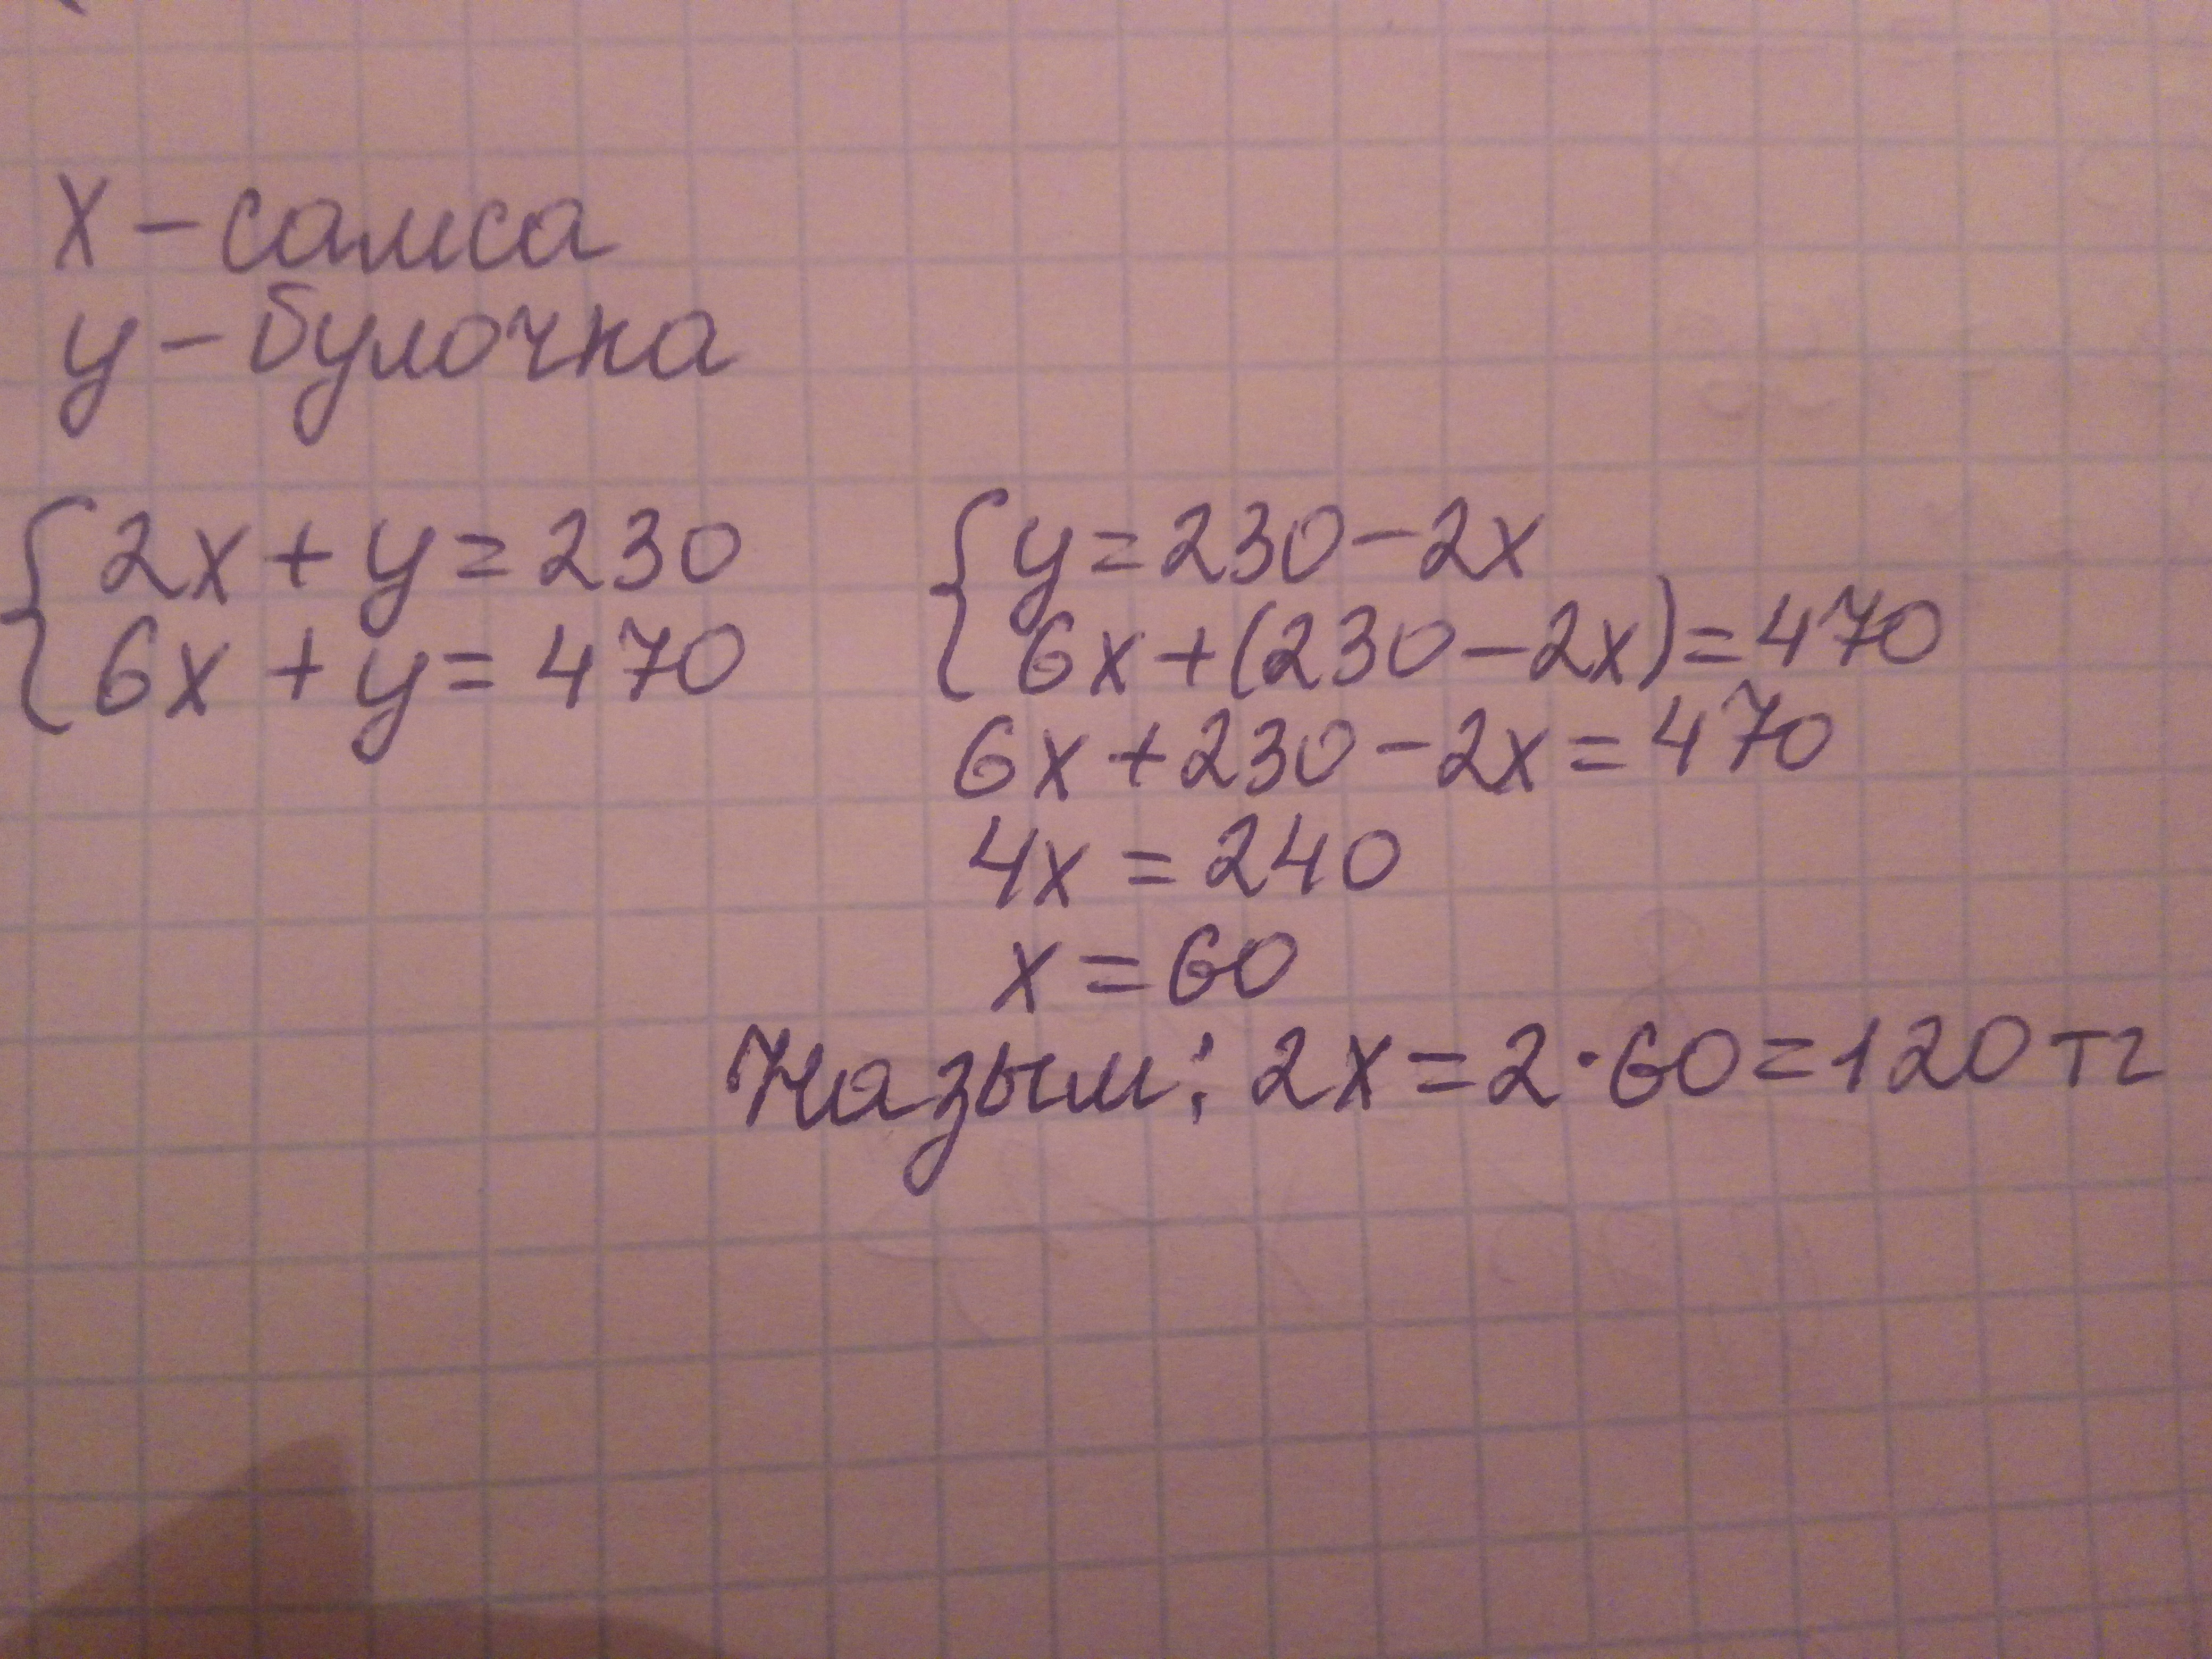 x – самса
y – булочка
2x + y = 230
6x + y = 470
y = 230 – 2x
6x + (230 – 2x) = 470
6x + 230 – 2x = 470
4x = 240
x = 60
Назым: 2x = 2 · 60 = 120 тг